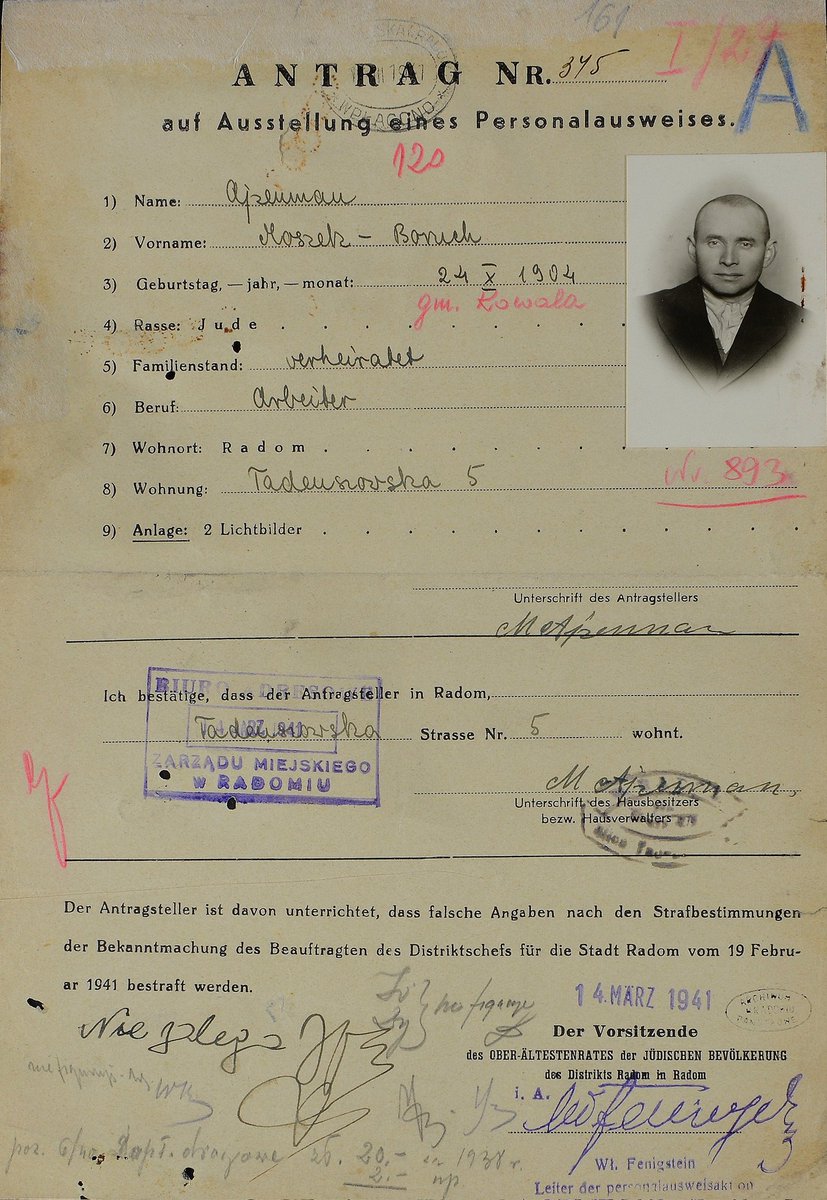 161
ANTRAG NR. 345
I/29
A
auf Ausstellung eines Personalausweises.
120
1) Name: Ajzenman
2) Vorname: Moszek - Boruch
3) Geburtstag, — jahr, — monat: 24 X 1904
gm. Kowala
4) Rasse: Jude
5) Familienstand: verheiratet
6) Beruf: Arbeiter
7) Wohnort: Radom
8) Wohnung: Tadeuszowska 5
Nr. 893
9) Anlage: 2 Lichtbilder
Unterschrift des Antragstellers
MAjzenman
Ich bestätige, dass der Antragsteller in Radom,
Tadeuszowska Strasse Nr. 5 wohnt.
BIURO ADRESOWE
MRZ. 1941
ZARZĄDU MIEJSKIEGO
W RADOMIU
M Ajzenman
Unterschrift des Hausbesitzers
bezw. Hausverwalters
Der Antragsteller ist davon unterrichtet, dass falsche Angaben nach den Strafbestimmungen
der Bekanntmachung des Beauftragten des Distriktschefs für die Stadt Radom vom 19 Febru-
ar 1941 bestraft werden.
14. MÄRZ 1941
Nie zalega
nie figuruje
Der Vorsitzende
des OBER-ÄLTESTENRATES der JÜDISCHEN BEVÖLKERUNG
des Distrikts Radom in Radom
i. A.
20.- 1938 r.
2.-
Wł. Fenigstein
Leiter der personalausweisaktion